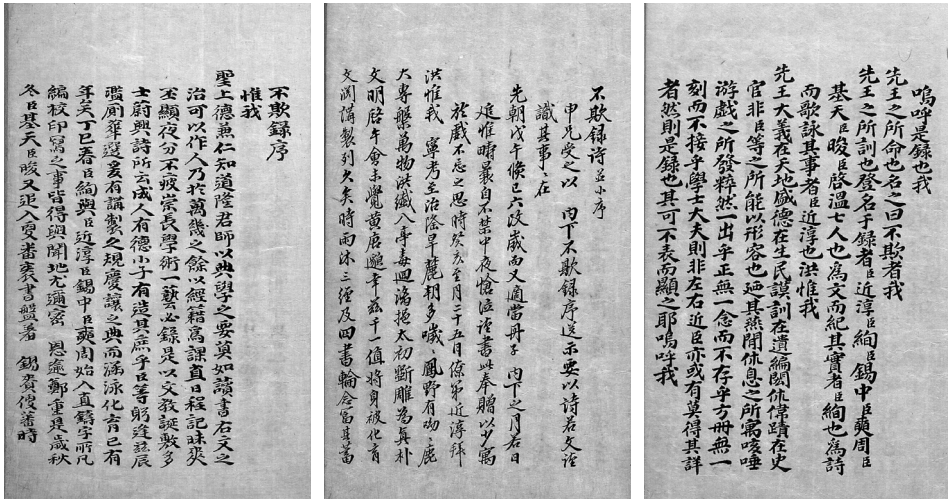 不欺錄序
惟我
聖上德兼仁知道隆君師以典學之要莫如讀書右文之
治可以作人乃於萬幾之餘以經籍爲課直日程記昧爽
丕顯夜分不疲崇長學術一藝必錄是以文敎誕敷多
士蔚興詩所云成人有德小子有造其庶乎臣等躬逢玆辰
濫厠華選爰有講製之規慶讓之典而涵泳化育已有
年矣丁巳春臣絢與臣近淳臣錫中臣奭周始入直鑄字所凡
編校印寫之事皆得與聞地尤邇密 恩遂鄭重是歲秋
冬臣基天臣晙又追入更番奏書盤 錫賚優蕃時
不欺錄詩 並小序
申兄受之以 內下不欺錄序送示要以詩若文註
識其事事在
先朝戊午倏已六改歲而又適當丹子 內下之月若日
追惟疇曩自不禁中夜愴泣謹書此奉贈以少寓
於戲不忘之思時癸亥至月二十五日徐弟近淳拜
洪惟我 寧考至治隆旱麓朝多 鳳野有呦呦鹿
大專槃萬物洪纖入亭毒迴瀾挹太初斲雕爲眞朴
文明啓午會未覺黃唐邈幸玆千一值將身被化育
文淵講製列久矣時雨沐三經及四書輪念富其蓄
嗚呼是錄也我
先王之所命也名之曰不欺者我
先王之所訓也登名于錄者臣近淳臣絢臣錫中臣奭周臣
基天臣晙臣啓溫七人也爲文而紀其實者臣絢也爲詩
而歌詠其事者臣近淳也洪惟我
先王大義在天地盛德在生民謨訓在遺編閎休偉蹟在史
官非臣等之所能以形容也廼其燕閒休息之所寓咳唾
游戲之所發粹然一出乎正無一念而不存乎方冊無一
刻而不接乎學士大夫則非左右近臣亦或有莫得其詳
者然則是錄也其可不表而顯之耶嗚呼我